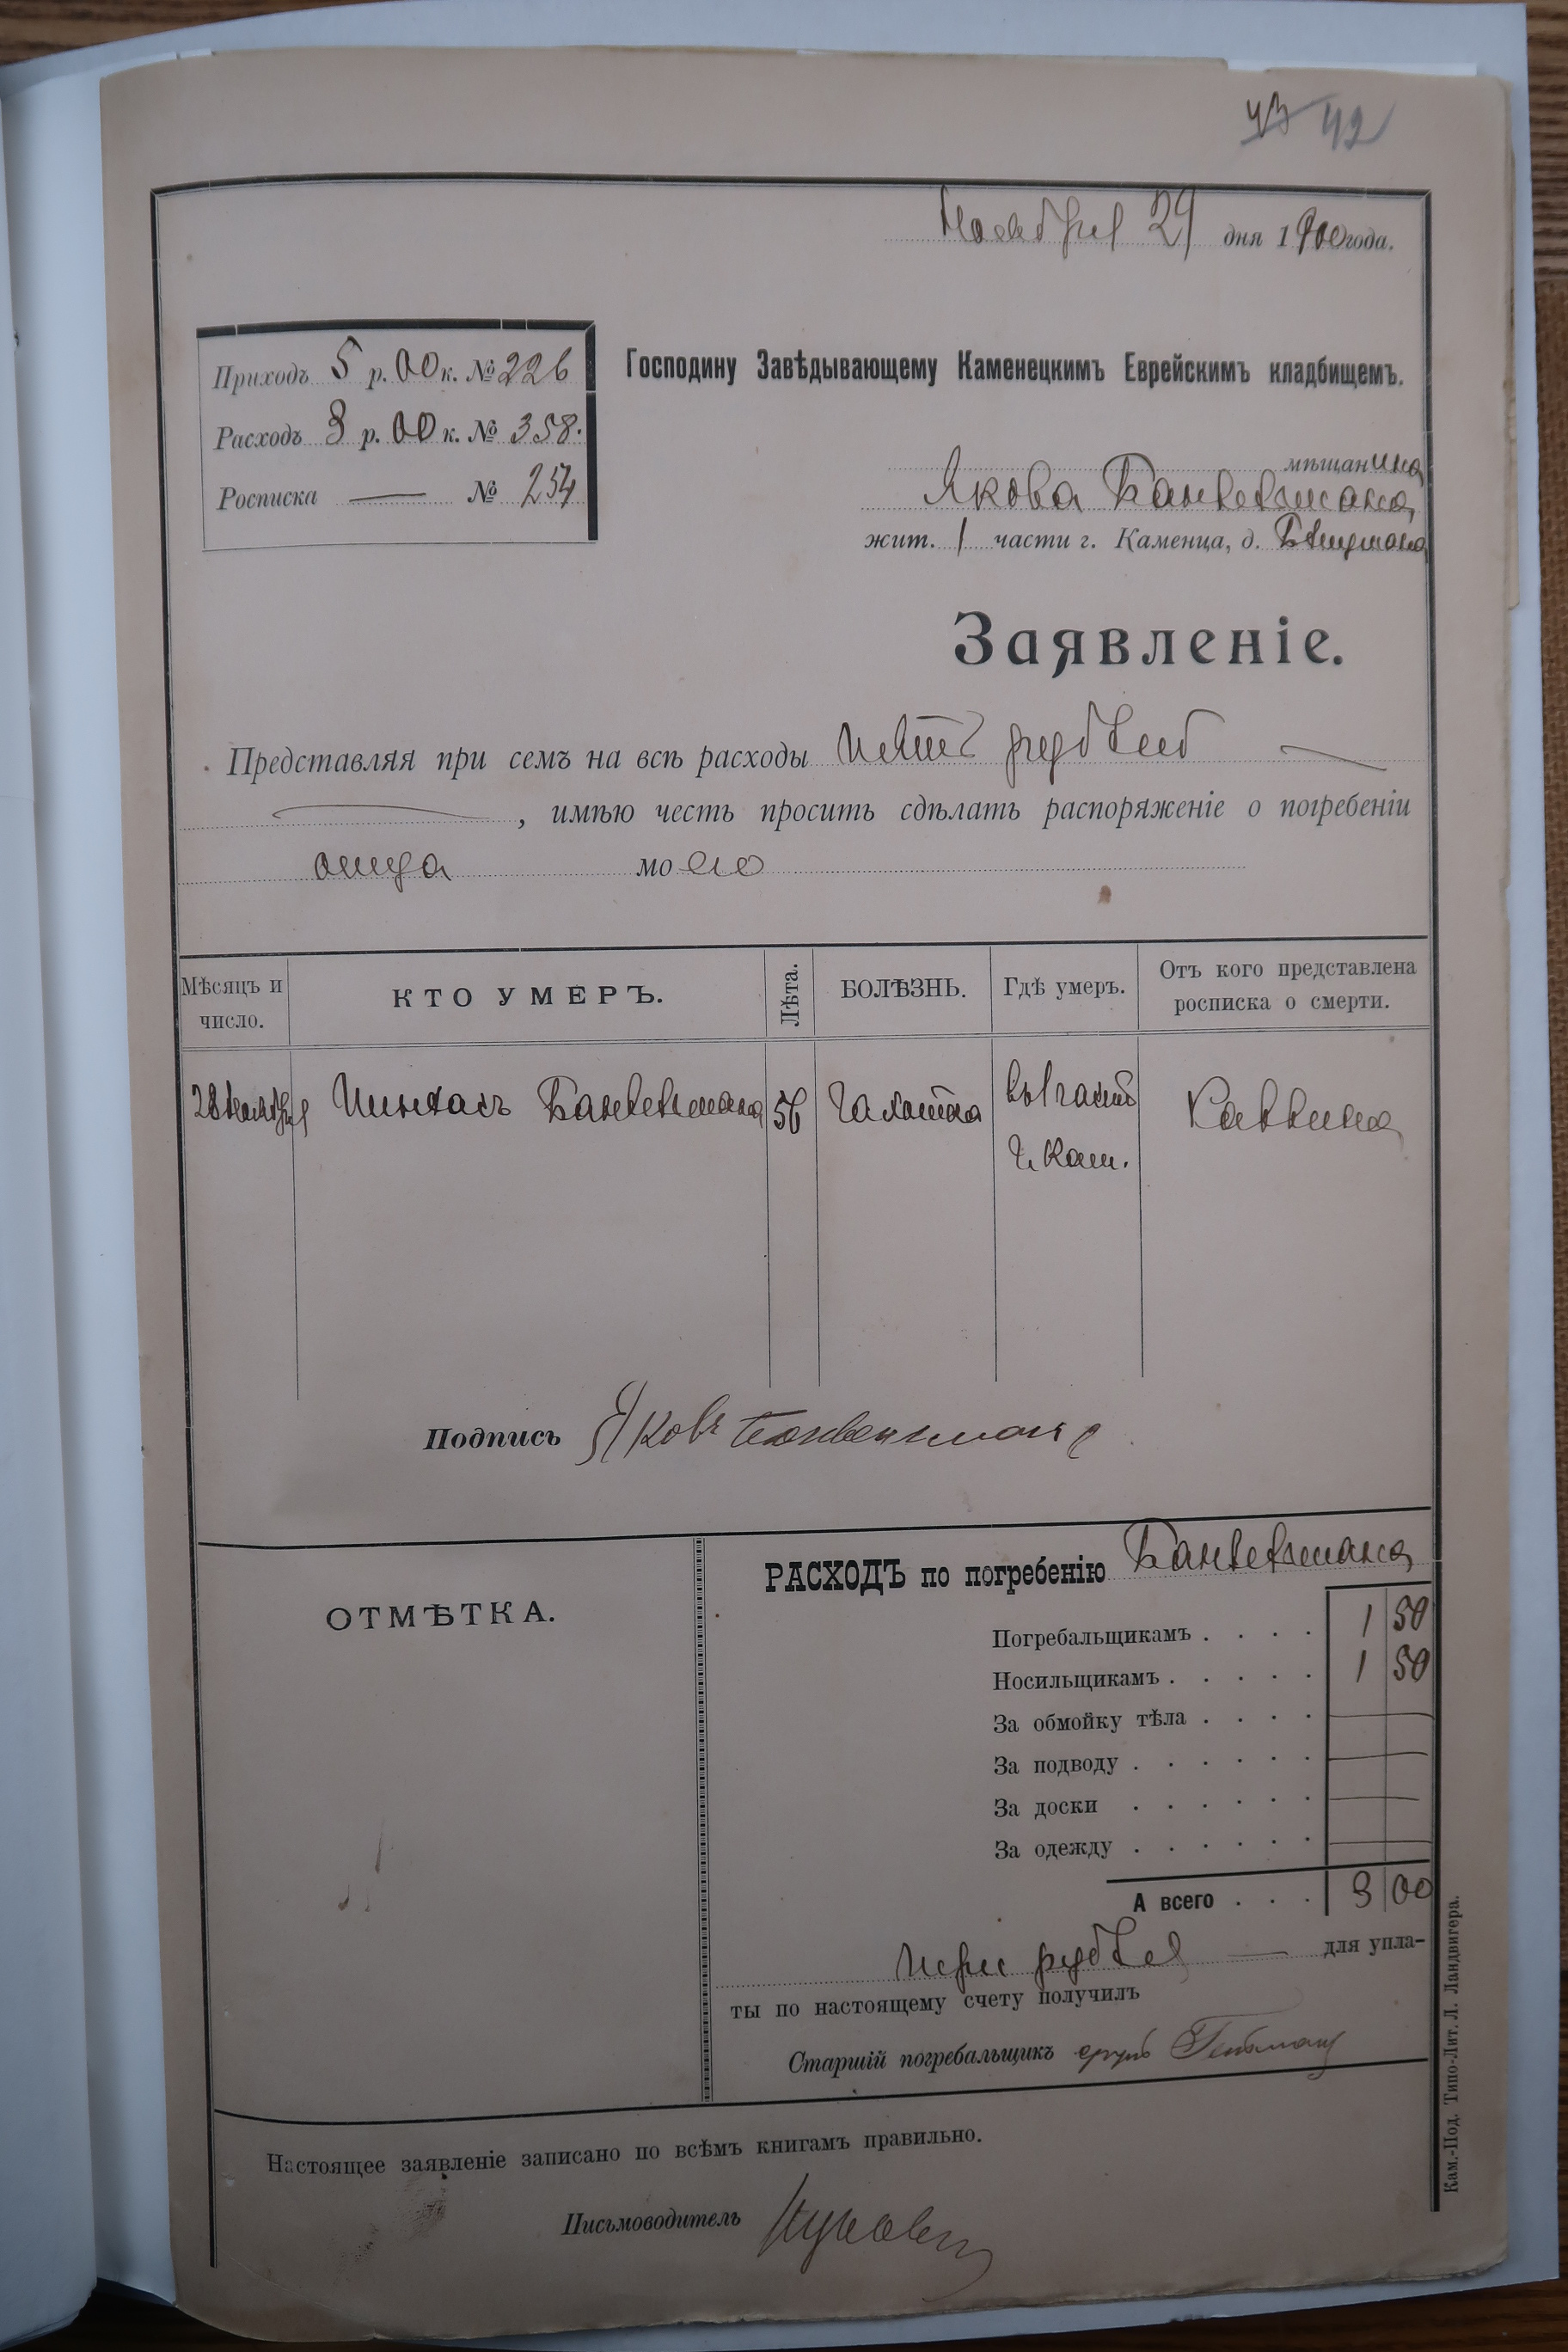 43 42
Ноября 29 дня 1900 года.
Приходъ 5 р. 00 к. № 226
Расходъ 3 р. 00 к. № 358.
Росписка — № 254
Господину Завѣдывающему Каменецкимъ Еврейскимъ кладбищемъ.
мѣщанина
Якова
жит. 1 части г. Каменца, д.
Заявленіе.
Представляя при семъ на всѣ расходы пять рублей —
—, имѣю честь просить сдѣлать распоряженіе о погребеніи
отца моего
Мѣсяцъ и число. КТО УМЕРЪ. Лѣта. БОЛѢЗНЬ. Гдѣ умеръ. Отъ кого представлена росписка о смерти.
28 Ноября Пинхасъ 56 Чахотка въ 1 части Раввина
г. Кам.
Подпись Яковъ
ОТМѢТКА.
РАСХОДЪ по погребенію
Погребальщикамъ . . . . 1 50
Носильщикамъ . . . . . 1 50
За обмойку тѣла . . . . —
За подводу . . . . . —
За доски . . . . . —
За одежду . . . . . —
А всего . . . 3 00
три рубля — для упла-
ты по настоящему счету получилъ
Старшій погребальщикъ
Настоящее заявленіе записано по всѣмъ книгамъ правильно.
Письмоводитель
Кам.-Под. Типо-Лит. Л. Ландвигера.